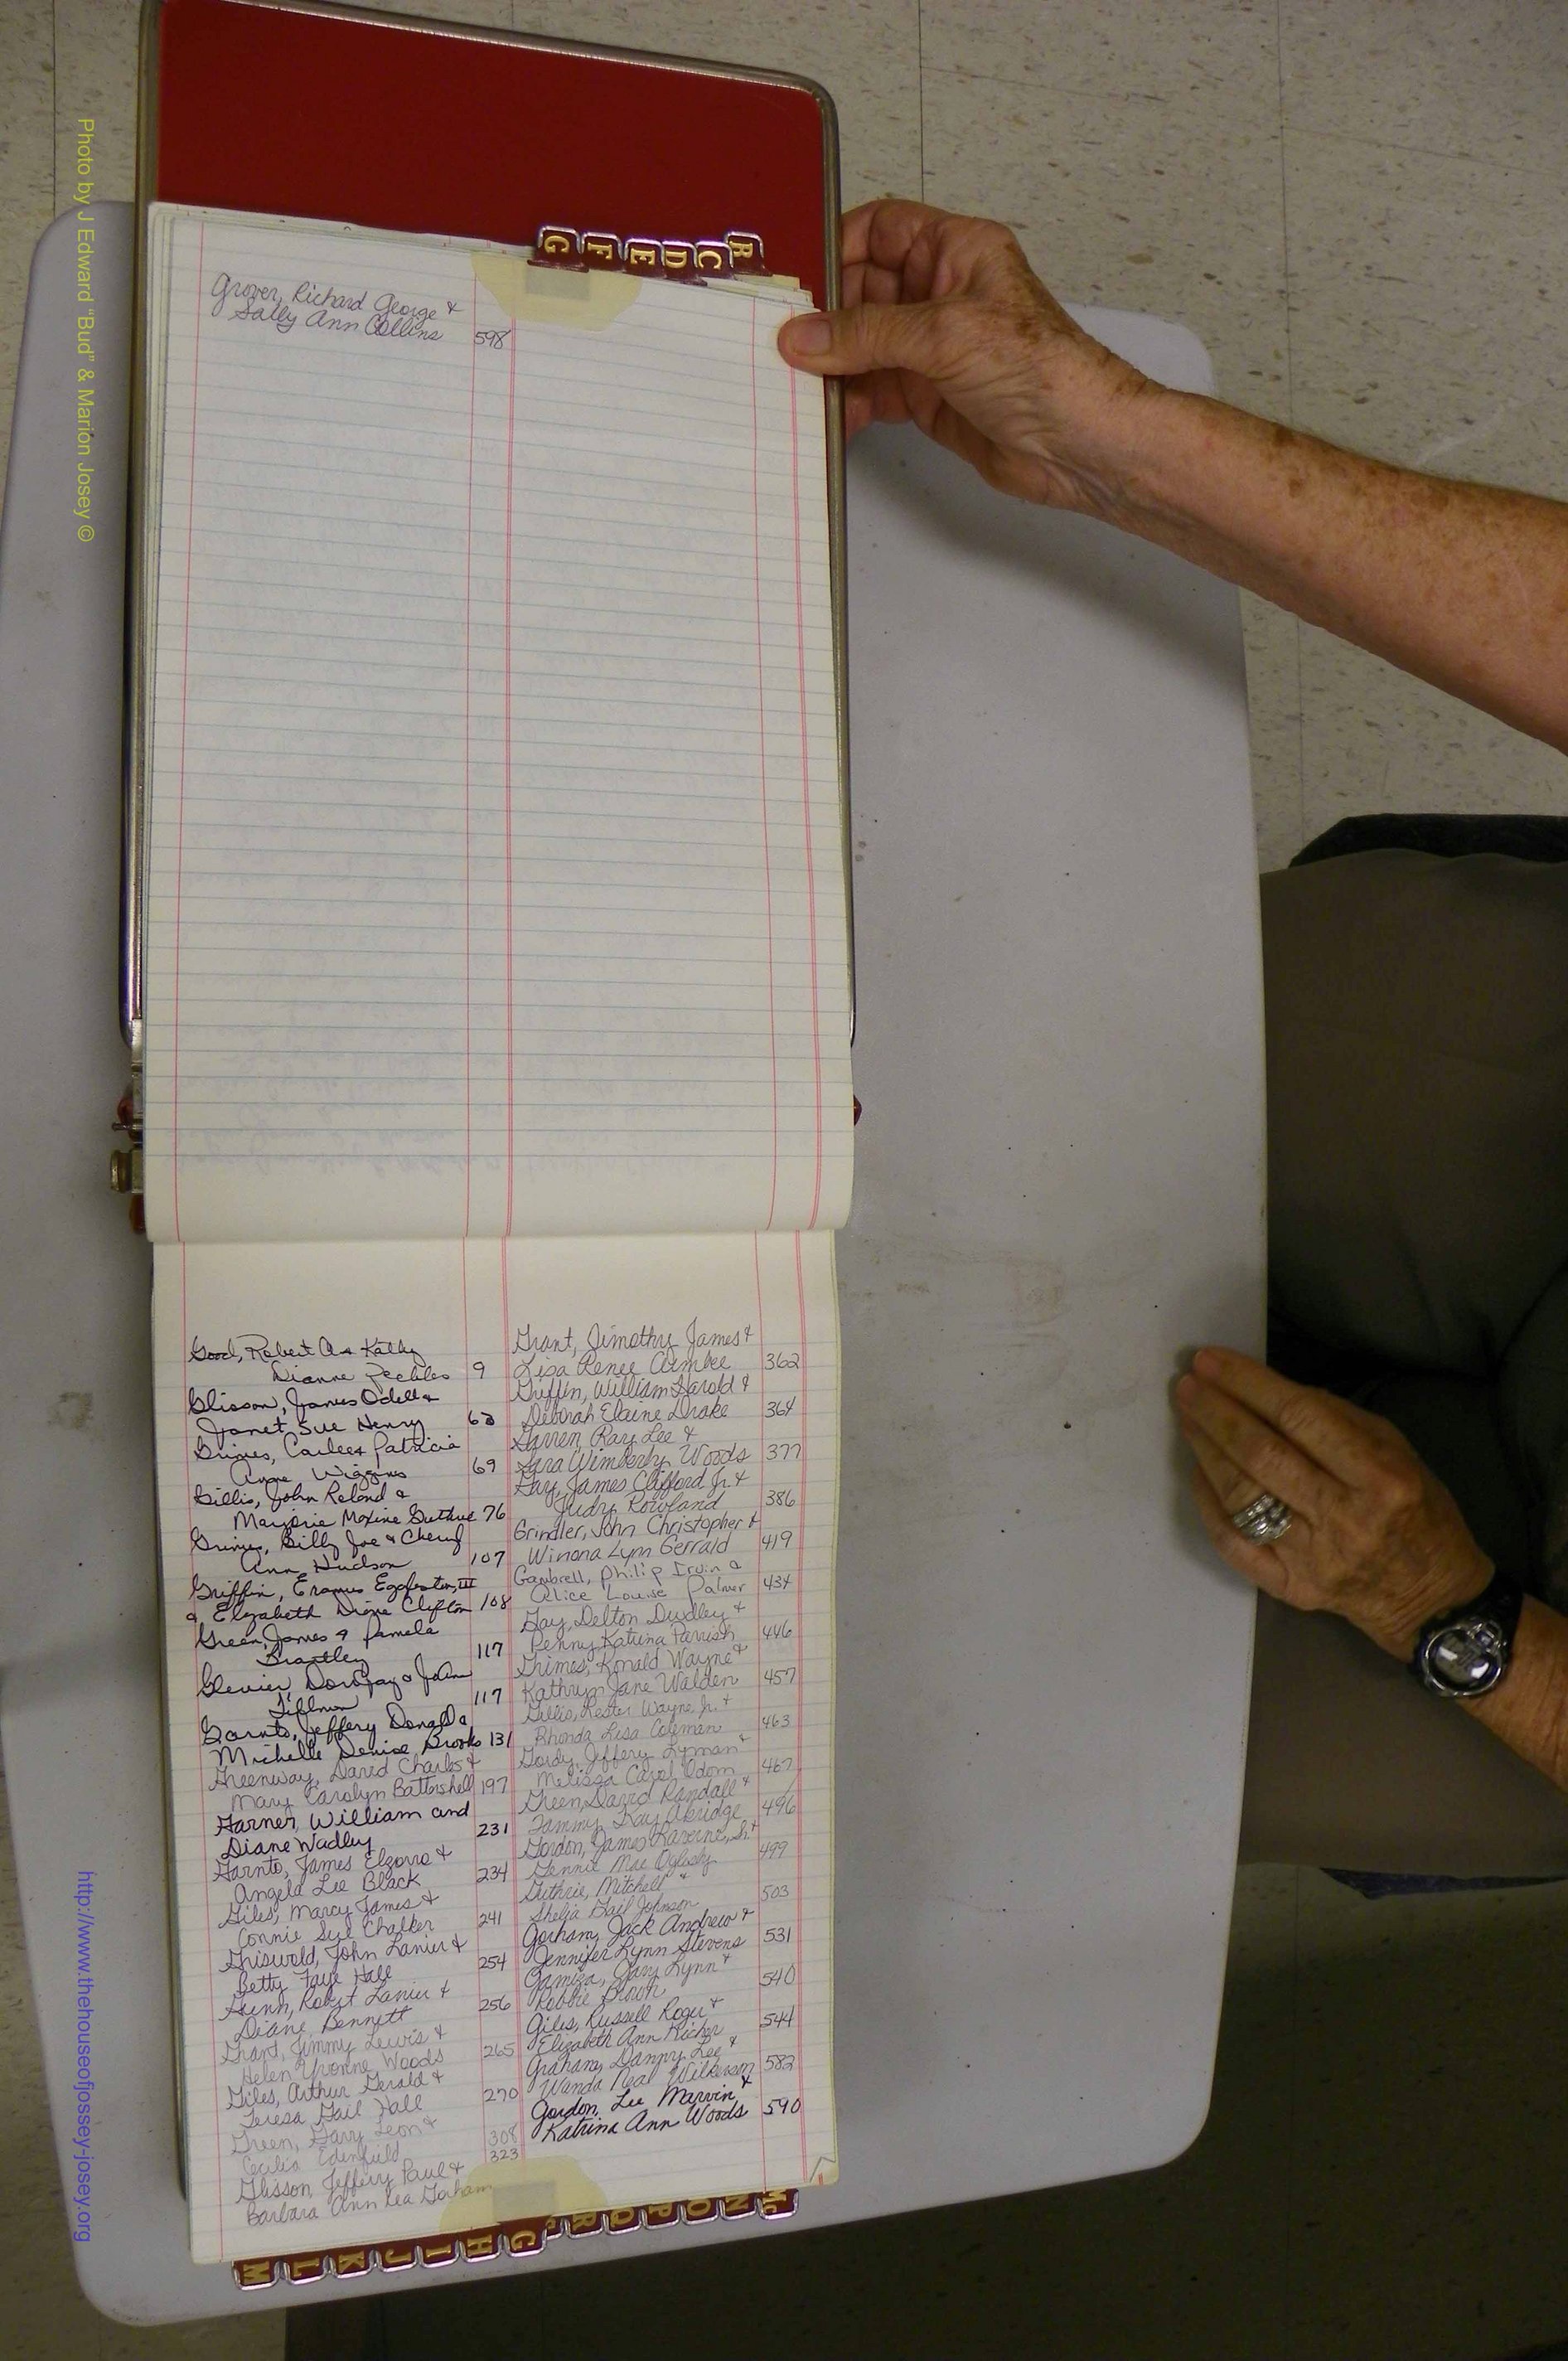 Photo by J Edward "Bud" & Marion Josey ©
G F E D C
Grover, Richard George &
Sally Ann Collins 598
Good, Robert A & Kathy
Dianne Peebles 9
Glisson, James Odell &
Janet Sue Henry
Grimes, Patricia
Anne Wiggins 69
Gillis, John Roland &
Marjorie Maxine Guthrie 76
Grimes, Billy Joe & Cheryl
Ann Hudson 107
Griffin, III
& Elizabeth Diane Clifton 108
Green, James & Pamela
Brantley 117
& JoAnn
Tillman 117
Garnto, Jeffery Donald &
Michelle Denise Brooks 131
Greenway, David Charles &
Mary Carolyn Battershell 197
Garner, William and
Diane Wadley 231
Garnto, James &
Angela Lee Black 234
Giles, Marcy James &
Connie Sue Chalker 241
Griswold, John Lanier &
Betty Faye Hall 254
Gunn, Robert Lanier &
Diane Bennett 256
Grant, Jimmy Lewis &
Helen Yvonne Woods 265
Giles, Arthur Gerald &
Teresa Gail Hall 270
Green, Gary Leon &
Cecilia Edenfield 308
Glisson, Jeffery Paul & 323
Barbara Ann Lea Gorham
Grant, Timothy James &
Lisa Renee 362
Griffin, William Harold &
Deborah Elaine Drake 364
Garren, Ray Lee &
Sara Wimberly Woods 377
Gay, James Clifford Jr. &
Judy Rowland 386
Grindler, John Christopher &
Winona Lynn Gerrald 419
Gambrell, Philip Irvin &
Alice Louise Palmer 434
Gay, Delton Dudley &
Penny Katrina Parrish 446
Grimes, Ronald Wayne &
Kathryn Jane Walden 457
Gillis, Lester Wayne, Jr. &
Rhonda Lisa Coleman 463
Gordy, Jeffery Lyman &
Melissa Carol Odom 467
Green, David Randall &
Tammy Kay 496
Gordon, James Laverne, Sr. &
Mae Oglesby 499
Guthrie, Mitchell &
Shelia Gail Johnson 503
Gorham, Jack Andrew &
Jennifer Lynn Stevens 531
Gary Lynn &
Robbie Brown 540
Giles, Russell Roger &
Elizabeth Ann Richer 544
Graham, Danny Lee &
Wanda Neal Wilkerson 582
Gordon, Lee Marvin &
Katrina Ann Woods 590
M L K J I H G
R Q P O N Mc
http://www.thehouseofjossey-josey.org